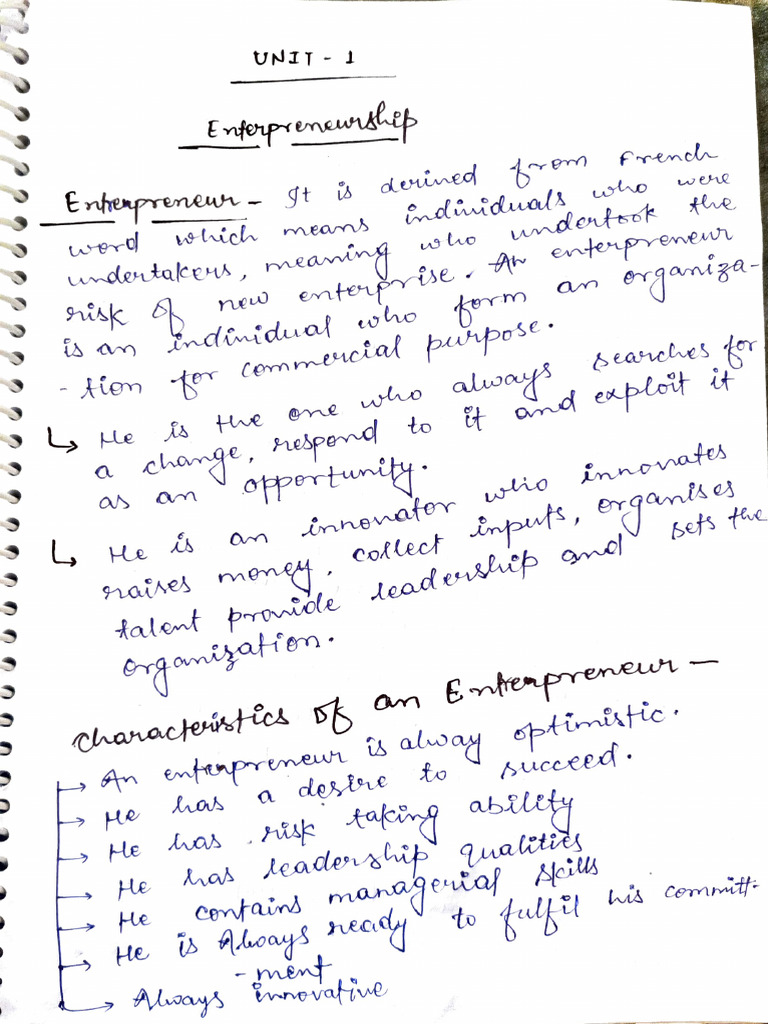 UNIT - 1
Enterpreneurship
Enterpreneur - It is derined from French
word which means individuals who were
undertakers, meaning who undertook the
risk of new enterprise. An enterpreneur
is an individual who form an organiza-
-tion for commercial purpose.
↳ He is the one who always searches for
a change, respond to it and exploit it
as an opportunity.
↳ He is an innovator who innovates
raises money, collect inputs, organises
talent provide leadership and sets the
organization.
Characteristics of an Enterpreneur -
→ An enterpreneur is alway optimistic.
→ He has a desire to succeed.
→ He has risk taking ability
→ He has leadership qualities
→ He contains managerial skills
→ He is Always ready to fulfil his committ-
-ment
→ Always innovative